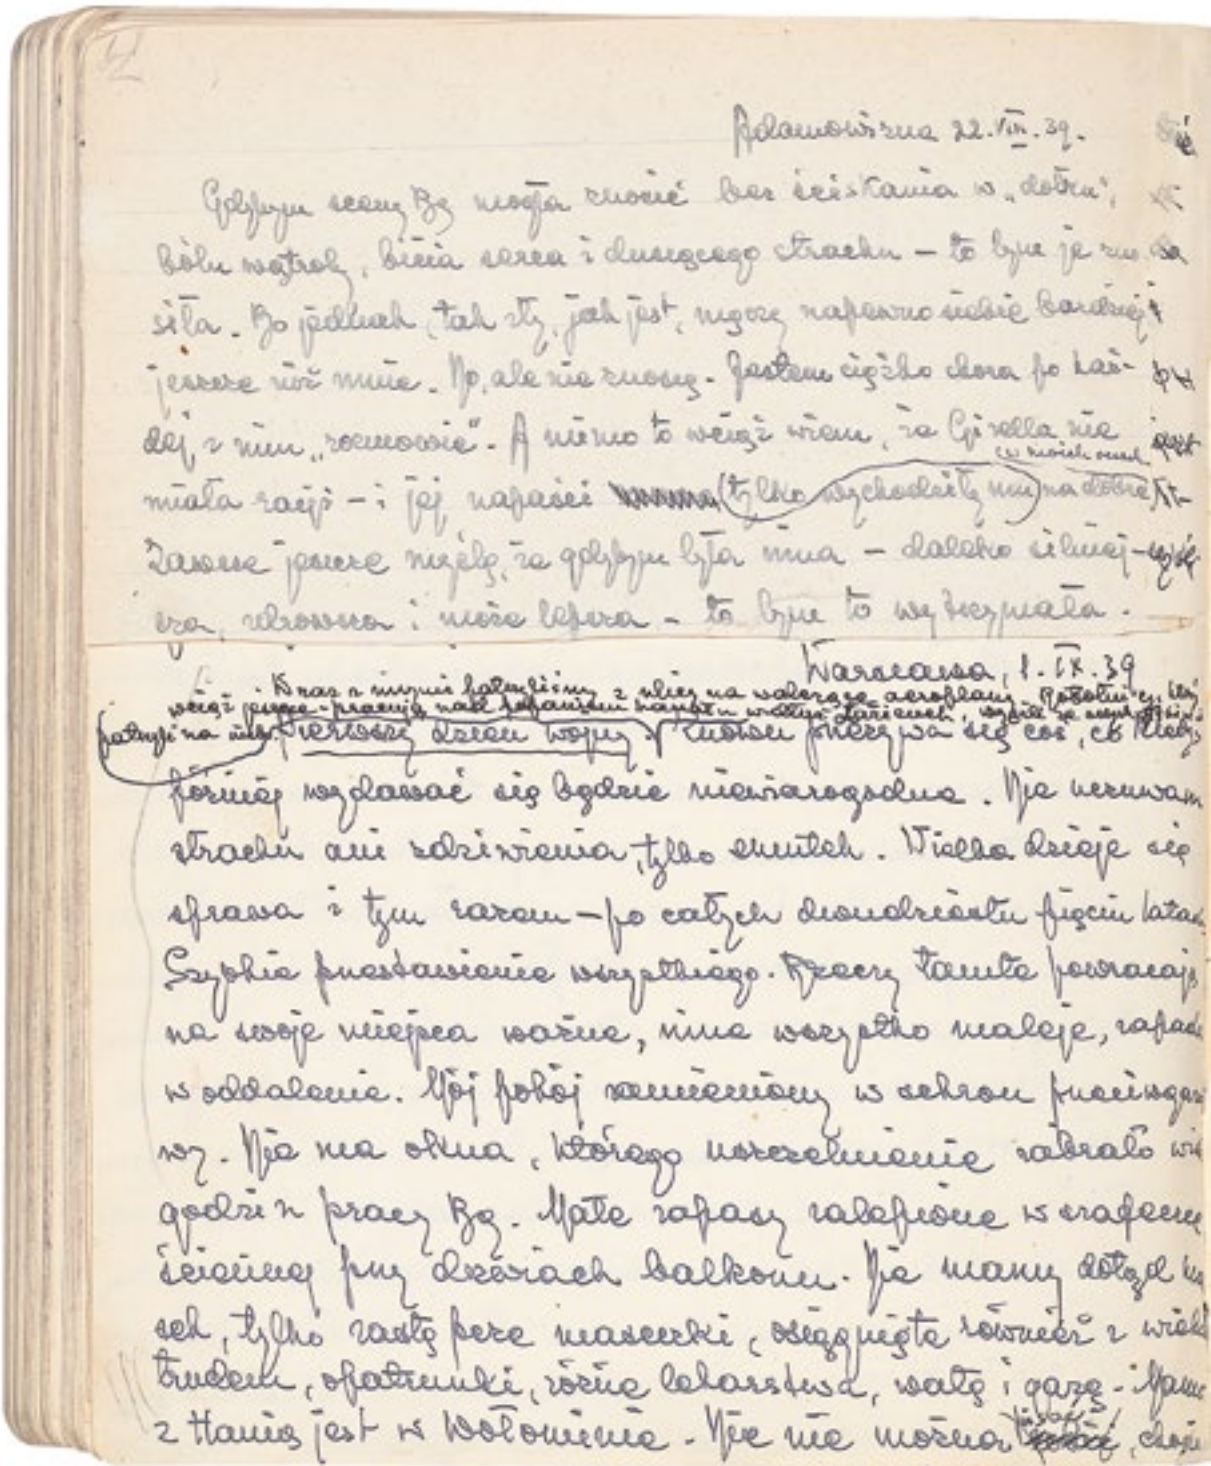 Adamowizna 22.VIII.39.
Gdybym sceny Bg mogła znosić bez ściskania w „dołku",
bólu wątroby, bicia serca i duszącego strachu – to bym je zno
siła. Bo jednak, tak zły, jak jest, męczy napewno siebie bardziej
jeszcze niż mnie. No, ale nie znoszę. Jestem ciężko chora po każ-
dej z nim „rozmowie". A mimo to wciąż wiem, że Gizella nie
w moich oczach
miała racji – i jej napaści (tylko wychodziły mu) na dobre
Zawsze jeszcze myślę, że gdybym była inna – daleko silniej-
sza, zdrowsza i może lepsza – to bym to wytrzymała.
Warszawa, 1.IX.39
Wraz z innymi patrzyliśmy z ulicy na walczące aeroplany. Robotnicy,
wciąż jeszcze pracują nad
patrzyli na nas. Pierwszy dzień wojny. Znowu przeżywa się coś, co kiedyś
później wydawać się będzie niewiarogodne. Nie doznawam
strachu ani zdziwienia, tylko smutek. Wielka dzieje się
sprawa i tym razem – po całych dwudziestu pięciu latach
Szybkie przestawienie wszystkiego. Rzeczy tamte powracają
na swoje miejsca ważne, inne wszystko maleje, zapada
w oddalenie. Mój pokój zamieniony w schron przeciwgazo
wy. Nie ma okna, którego uszczelnienie zabrało wie
godzin pracy Bg. Małe zapasy zalepione w szafeczce
ściennej przy drzwiach balkonu. Nie mamy dotąd ma
sek, tylko zastępcze maseczki, osiągnięte również z wielk
trudem, opatrunki, różne lekarstwa, watę i gazę. Mama
z Hanią jest w Wołominie. Nic nie można pisać, choć